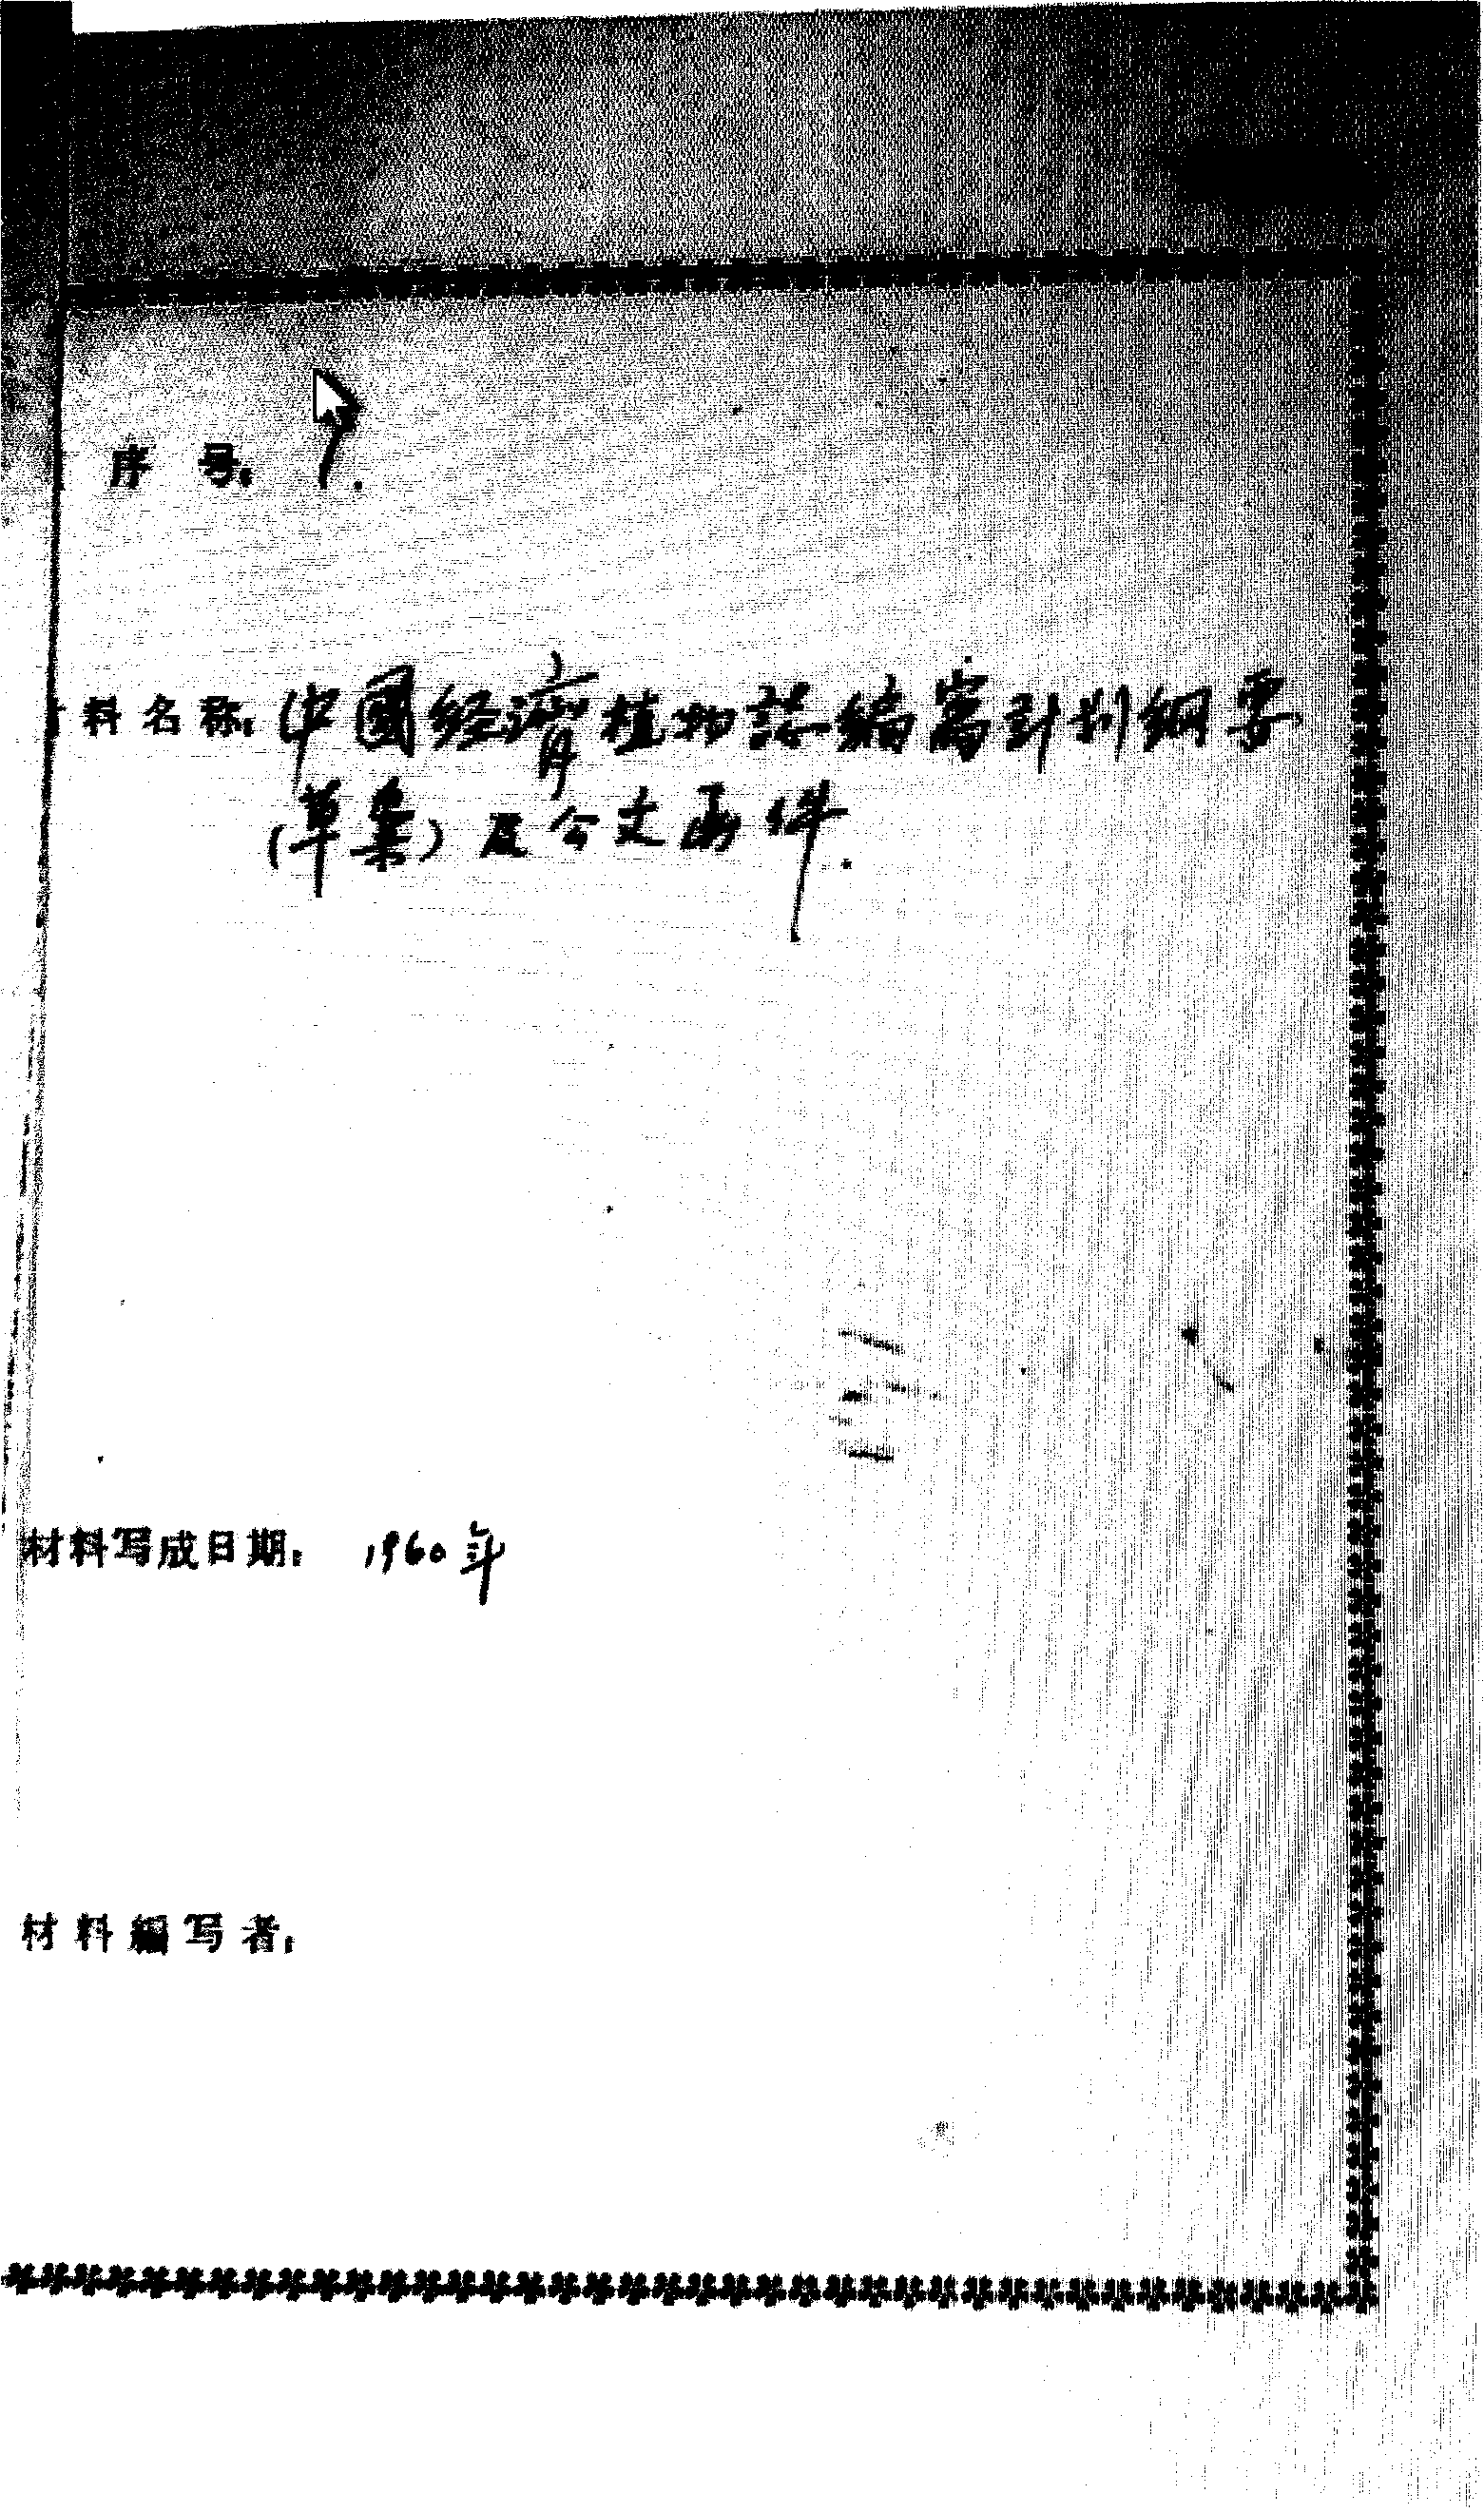 序 号：
料名称：中國经濟植物誌编寫計划纲要
(草案)及公文函件.
材料写成日期： 1960年
材料编写者：